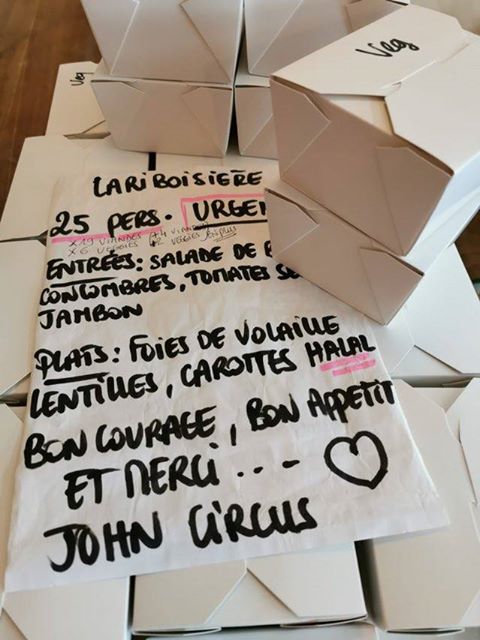 Veg
LARIBOISIERE
25 PERS. URGEN
x 19 VIANDES
x 6 VEGGIES
ENTRÉES: SALADE DE
CONCOMBRES, TOMATES SE
JAMBON
PLATS: FOIES DE VOLAILLE
LENTILLES, CAROTTES HALAL
BON COURAGE, BON APPETIT
ET MERCI ... -
JOHN CIRCUS